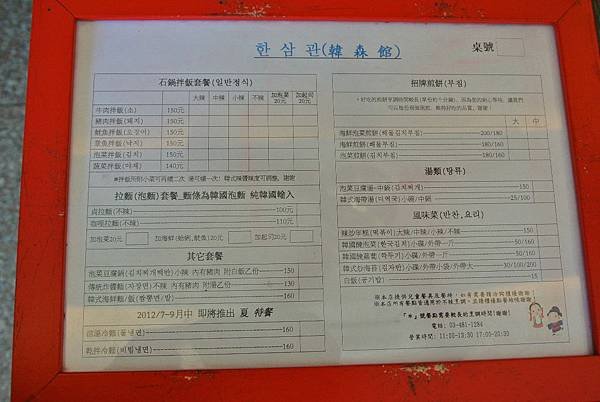 한 삼 관(韓 森 館)
桌號
石鍋拌飯套餐(일반정식)
大辣 中辣 小辣 不辣 加泡菜20元 加起司20元
牛肉拌飯(소) 150元
豬肉拌飯(돼지) 150元
魷魚拌飯(오징어) 150元
章魚拌飯(낙지) 150元
泡菜拌飯(김치) 150元
蔬菜拌飯(야채) 140元
*拌飯所附小菜可再續二次 湯可續一次! 韓式辣醬辣度可調整，謝謝
拉麵(泡麵)套餐_麵條為韓國泡麵 純韓國輸入
貞拉麵(不辣) 100元
咖哩拉麵(不辣) 110元
加泡菜20元 加海鮮(蛤蜊,魷魚)20元 加起司20元
其它套餐
泡菜豆腐鍋(김치찌개백반)小辣 內有豬肉 附白飯乙份 150
傳統炸醬麵(자장면)不辣 內有豬肉 附湯乙份 130
韓式海鮮麵/飯(짬뽕면/밥) 160
2012/7-9月中 即將推出 夏 特餐
涼湯冷麵(물냉면) 160
乾拌冷麵(비빔냉면) 160
招牌煎餅(부침)
大 中
海鮮泡菜煎餅(해물김치부침) 200/180
海鮮煎餅(해물부침) 180/160
泡菜煎餅(김치부침) 180/160
湯類(탕류)
泡菜豆腐湯-中鍋(김치찌개) 150
韓式海帶湯(미역국)小碗/中鍋 25/100
風味菜(반찬,요리)
辣炒年糕(떡볶이)大辣/中辣/小辣/不辣 150
韓國醃泡菜(한국김치)小碟/外帶一斤 50/160
韓國醃蘿蔔(깍두기)小碟/外帶一斤 50/160
韓式炒海苔(김자반)小碟/外帶小袋/外帶大 30/100/200
白飯(공기밥) 15
※本店提供兒童餐具及餐椅，如有需要請洽詢櫃檯謝謝！
「*」號餐點需要較長的烹調時間!謝謝!
電話: 03-481-1284
營業時間:11:00-13:30 17:00-20:30